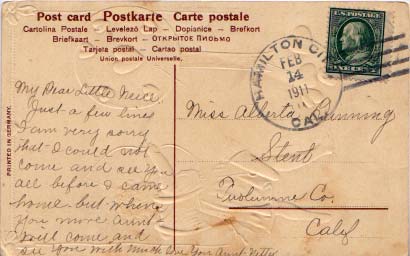 Post card Postkarte Carte postale
Cartolina Postale – Levelező Lap – Dopisnice – Brefkort
Briefkaart – Brevkort – ОТКРЫТОЕ ПИСЬМО
Tarjeta postal – Cartao postal
Union postale Universelle.
HAMILTON CITY
FEB
14
1911
CAL.
U.S. POSTAGE
PRINTED IN GERMANY.
My Dear Little Neice
Just a few lines
I am very sorry
that I could not
come and see you
all before I came
home but when
you move Aunt
will come and
see you with much love Your Aunt
Miss Alberta
Stent
Tuolumne Co.
Calif